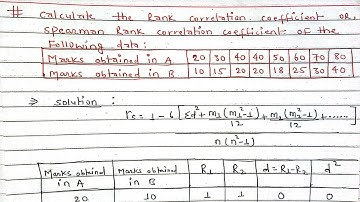 # Calculate the Rank correlation coefficient or
spearman Rank correlation coefficient of the
Following data:
Marks obtained in A 20 30 40 40 50 60 70 80
Marks obtained in B 10 15 20 20 18 25 30 40
⇒ solution :
rs = 1 - 6 [ Σd² + m₁(m₁²-1)/12 + m₂(m₂²-1)/12 + ...... ]
n(n²-1)
Marks obtained in A Marks obtained in B R₁ R₂ d=R₁-R₂ d²
20 10 1 1 0 0